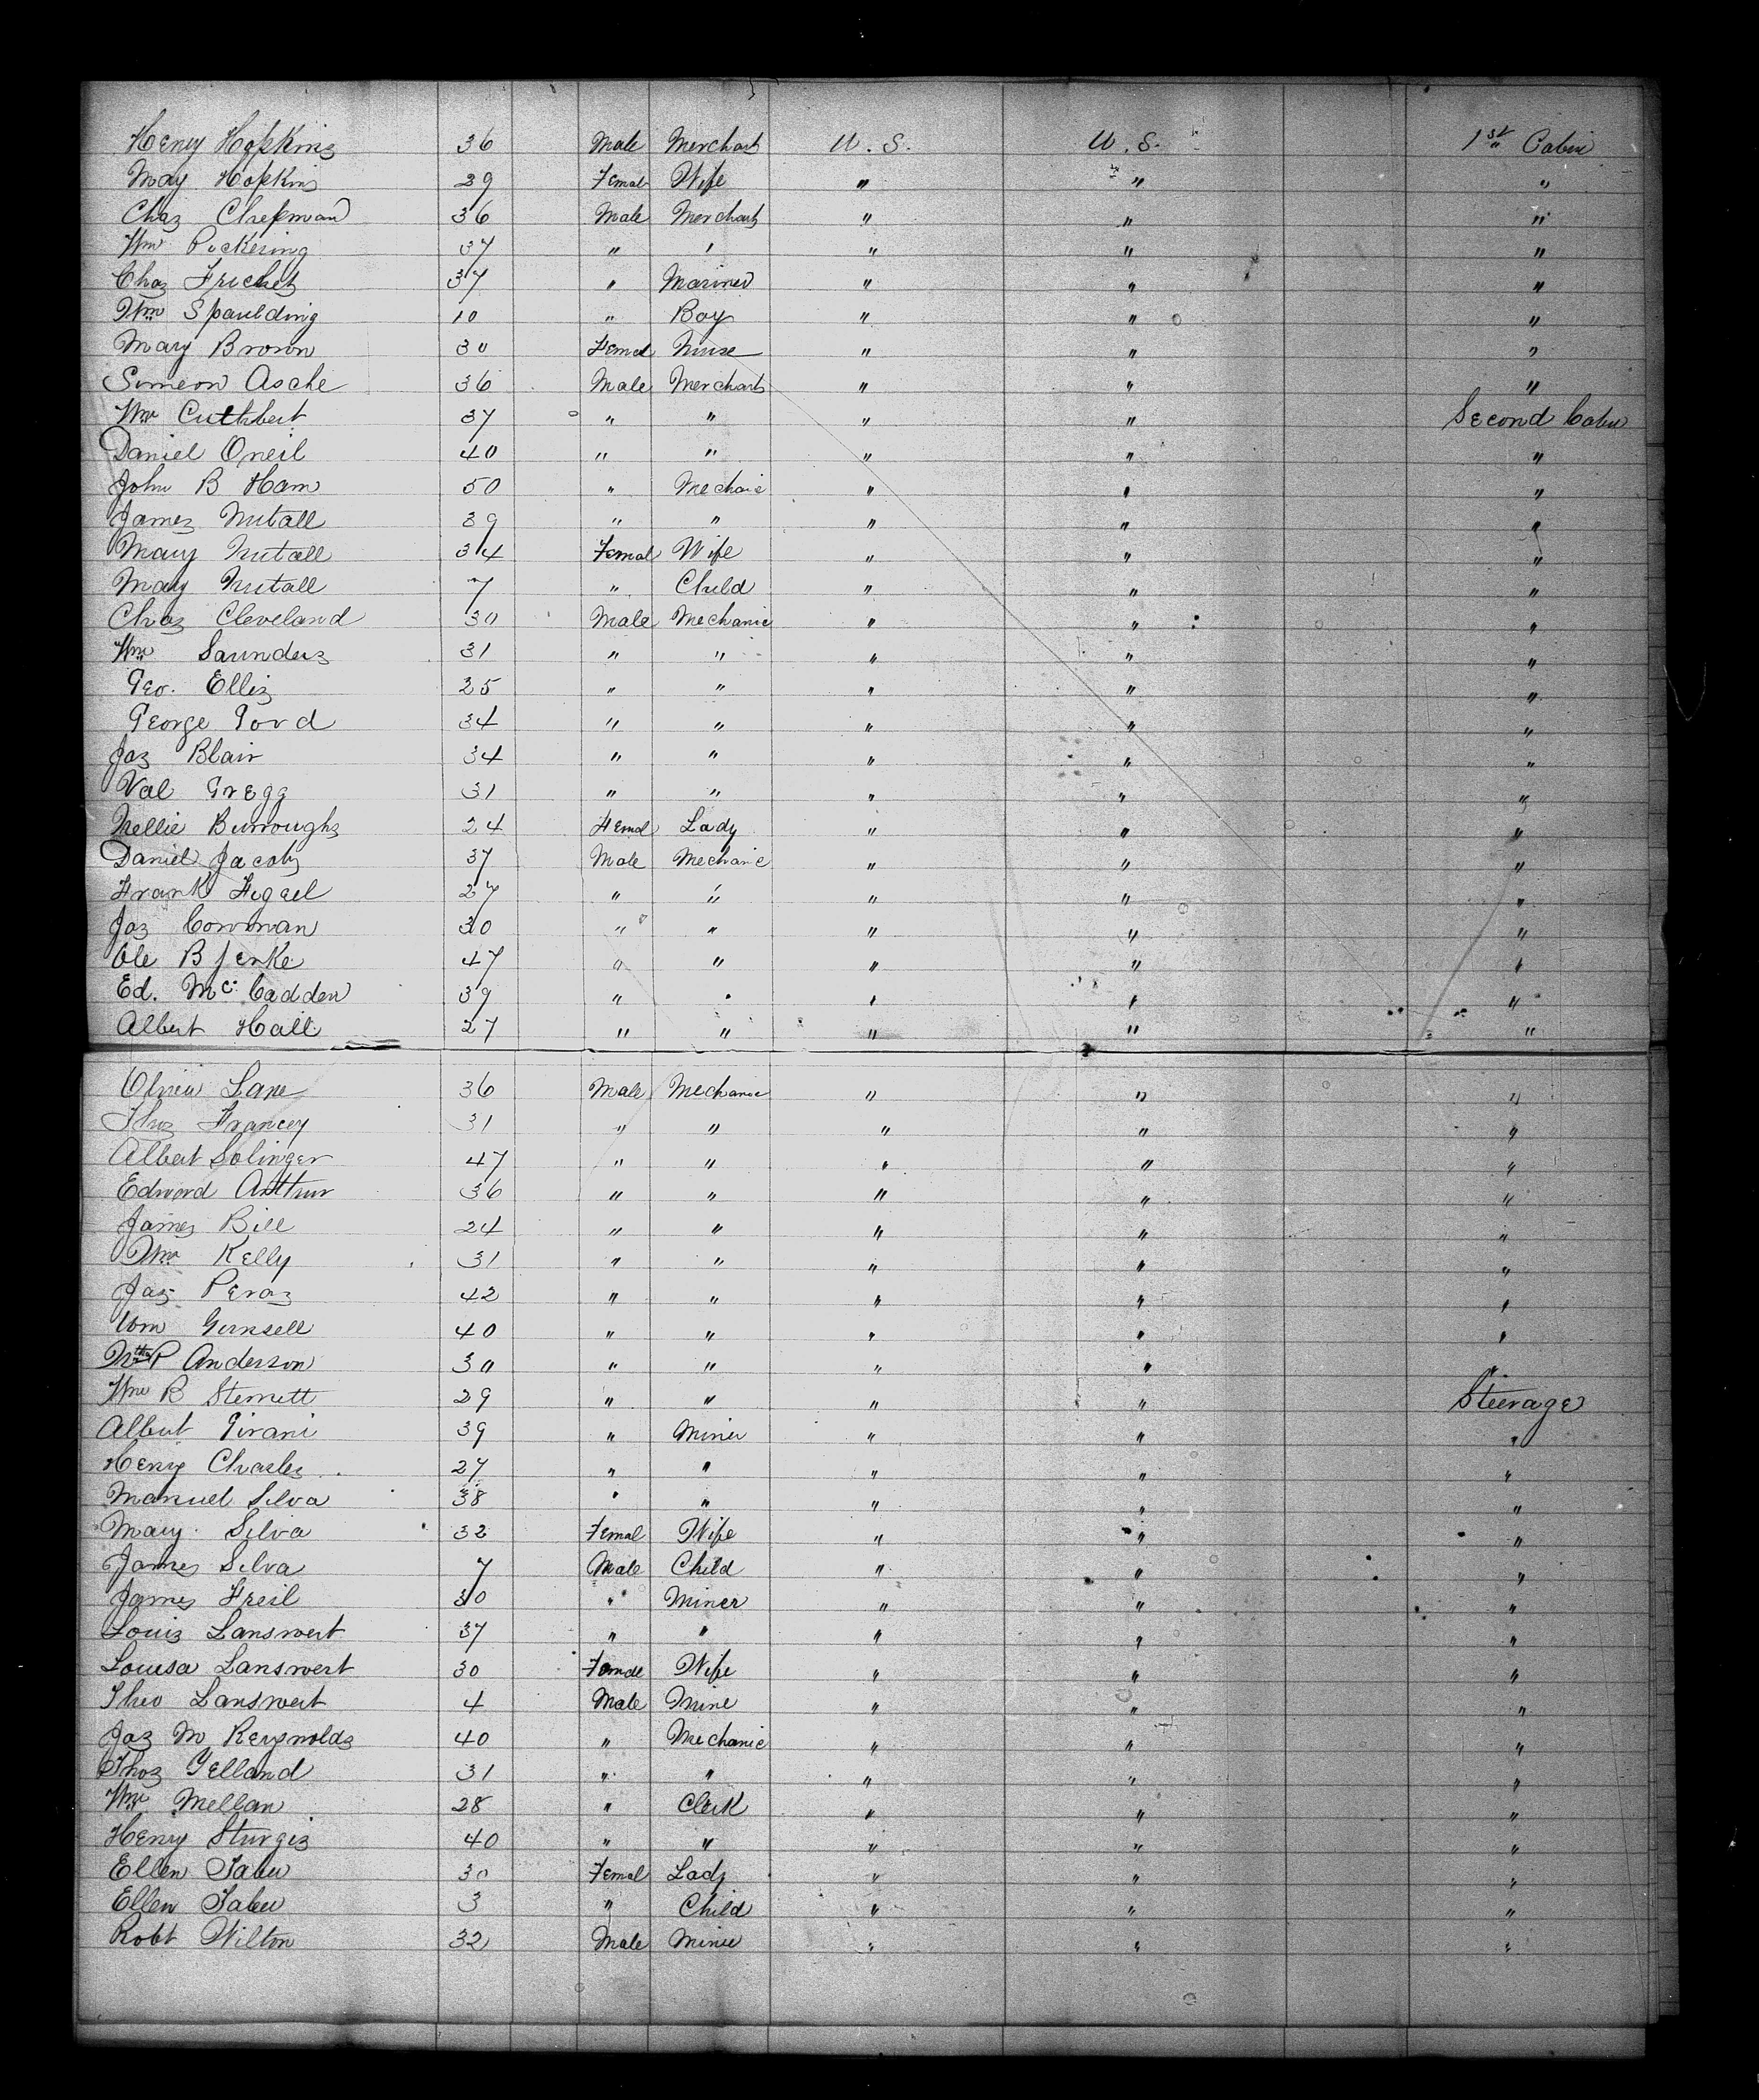 Henry Hopkins 36 Male Merchant U. S. U. S. 1st Cabin
May Hopkins 29 Femal Wife " " "
Chas Chepman 36 Male Merchant " " "
Wm Pickering 37 " " " " "
Chas Frichet 37 " Mariner " " "
Wm Spaulding 10 " Boy " " "
Mary Brown 30 Femal Nurse " " "
Simeon Asche 36 Male Merchant " " "
Wm Cuthbert 37 " " " " Second Cabin
Daniel Oneil 40 " " " " "
John B Ham 50 " Mechanic " " "
James Nutall 39 " " " " "
Mary Nutall 34 Femal Wife " " "
May Nutall 7 " Child " " "
Chas Cleveland 30 Male Mechanic " " "
Wm Saunders 31 " " " " "
Geo. Ellis 25 " " " " "
George Gord 34 " " " " "
Jas Blair 34 " " " " "
Val Gregg 31 " " " " "
Nellie Burroughs 24 Femal Lady " " "
Daniel Jacobs 37 Male Mechanic " " "
Frank Figael 27 " " " " "
Jas Cowman 30 " " " " "
Ole Bjenke 47 " " " " "
Ed. Mc. Cadden 39 " " " " "
Albert Hall 27 " " " " "
Oliver Lane 36 Male Mechanic " " "
Thos Francey 31 " " " " "
Albert Solinger 47 " " " " "
Edward Arthur 36 " " " " "
James Bill 24 " " " " "
Wm Kelly 31 " " " " "
Jas Peras 42 " " " " "
Wm Gunsell 40 " " " " "
P Anderson 30 " " " " "
Wm B Sterrett 29 " " " " Steerage
Albert Girani 39 " Miner " " "
Henry Charles 27 " " " " "
Manuel Silva 38 " " " " "
Mary Silva 32 Femal Wife " " "
James Silva 7 Male Child " " "
James Freil 30 " Miner " " "
Louis Lanswert 37 " " " " "
Louisa Lanswert 30 Femal Wife " " "
Theo Lanswert 4 Male Mine " " "
Jas M Reynolds 40 " Mechanic " " "
Thos Gelland 31 " " " " "
Wm Mellan 28 " Clerk " " "
Henry Sturgis 40 " " " " "
Ellen Taber 30 Femal Lady " " "
Ellen Taber 3 " Child " " "
Robt Wilton 32 Male Miner " " "